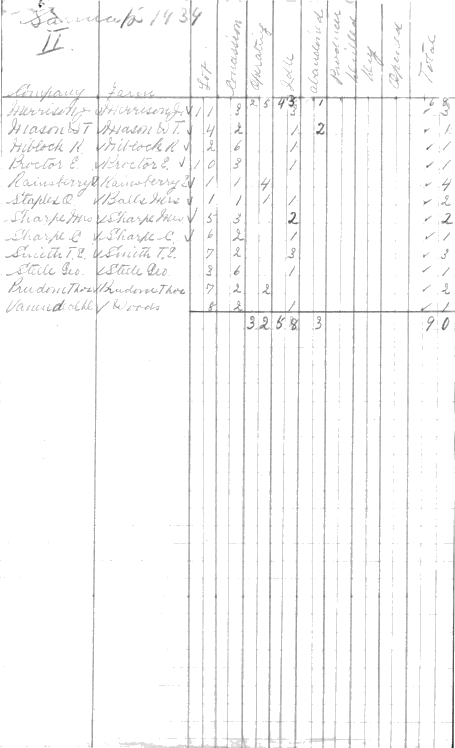 1934
II
Company Farm Lot Concession Operating Idle Abandoned Producer Drilled Dry Opened Total
Morrison J. ✓ Morrison J. ✓ 11 3 3 1 ✓
Mason W T ✓ Mason W T. 4 2 1 2 ✓ 1
Niblock R ✓ Niblock R ✓ 2 6 1 ✓ 1
Proctor E. ✓ Proctor E. ✓ 10 3 1 ✓ 1
Rainsberry ✓ Rainsberry 1 1 4 ✓ 4
Staples O ✓ Balls Mrs ✓ 1 1 1 1 ✓ 2
Sharpe Mrs ✓ Sharpe Mrs ✓ 5 3 2 ✓ 2
Sharpe C ✓ Sharpe C. ✓ 6 2 1 ✓ 1
Smith T.E. ✓ Smith T.E. 7 2 3 ✓ 3
Steele Geo. ✓ Steele Geo. 3 6 1 ✓ 1
Prudom Thos ✓ Prudom Thos 7 2 2 ✓ 2
✓ Woods 8 2 1 ✓ 1
32 58 3 90